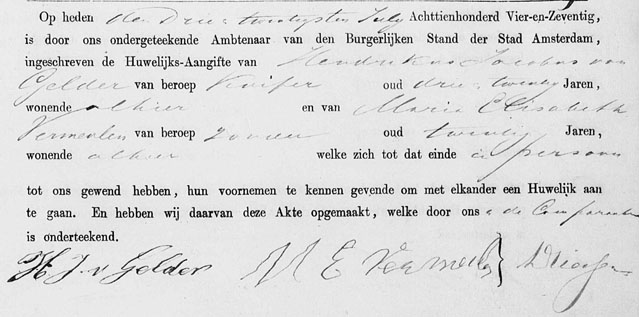 Op heden den Drie-twintigsten July Achttienhonderd Vier-en-Zeventig,
is door ons ondergeteekende Ambtenaar van den Burgerlijken Stand der Stad Amsterdam,
ingeschreven de Huwelijks-Aangifte van Hendrikus Jacobus van
Gelder van beroep Kuiper oud drie-twintig Jaren,
wonende alhier en van Maria Elisabeth
Vermeulen van beroep zonder oud twintig Jaren,
wonende alhier welke zich tot dat einde in persoon
tot ons gewend hebben, hun voornemen te kennen gevende om met elkander een Huwelijk aan
te gaan. En hebben wij daarvan deze Akte opgemaakt, welke door ons & de Comparanten
is onderteekend.
H J. v Gelder M E Vermeulen